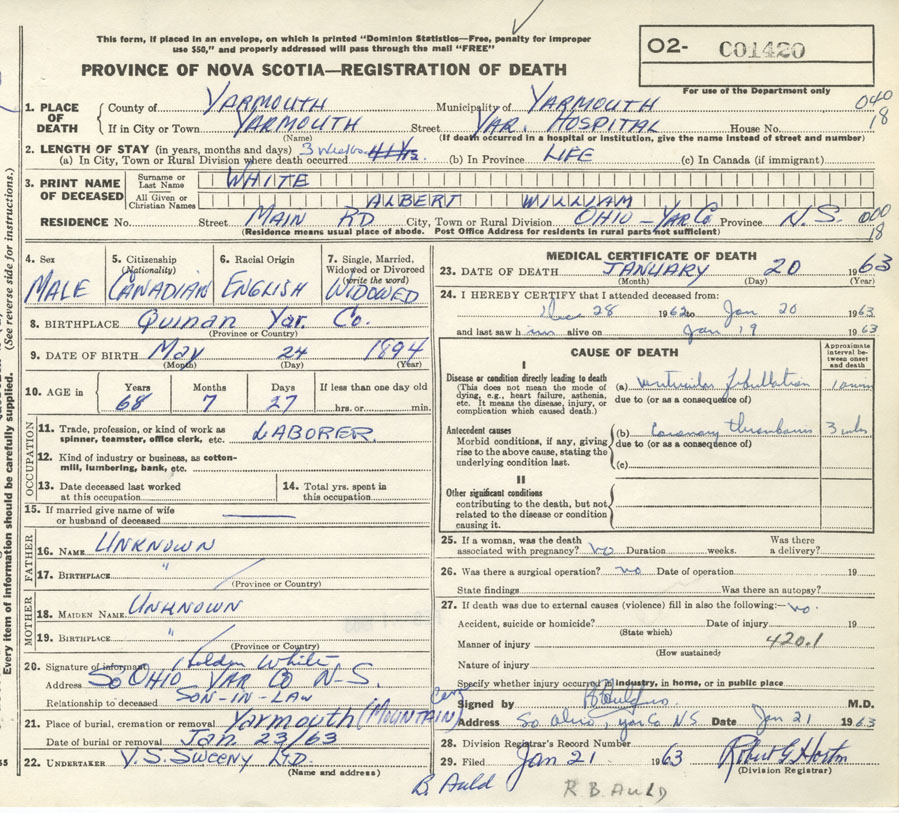 This form, if placed in an envelope, on which is printed "Dominion Statistics—Free, penalty for improper
use $50," and properly addressed will pass through the mail "FREE"
O2- C01420
For use of the Department only
PROVINCE OF NOVA SCOTIA—REGISTRATION OF DEATH
1. PLACE OF DEATH { County of YARMOUTH Municipality of YARMOUTH 040
If in City or Town YARMOUTH Street YAR. HOSPITAL House No. 18
(Name) (If death occurred in a hospital or institution, give the name instead of street and number)
2. LENGTH OF STAY (in years, months and days) 3 weeks.
(a) In City, Town or Rural Division where death occurred (b) In Province LIFE (c) In Canada (if immigrant)
3. PRINT NAME OF DECEASED { Surname or Last Name WHITE
All Given or Christian Names ALBERT WILLIAM
RESIDENCE No. Street MAIN RD City, Town or Rural Division OHIO - YAR CO Province N.S. 000
(Residence means usual place of abode. Post Office Address for residents in rural parts not sufficient) 18
4. Sex 5. Citizenship (Nationality) 6. Racial Origin 7. Single, Married, Widowed or Divorced (write the word)
MALE CANADIAN ENGLISH WIDOWED
8. BIRTHPLACE Quinan Yar. Co.
(Province or Country)
9. DATE OF BIRTH May 24 1894
(Month) (Day) (Year)
10. AGE in Years Months Days If less than one day old
68 7 27 hrs. or min.
OCCUPATION
11. Trade, profession, or kind of work as spinner, teamster, office clerk, etc. LABORER
12. Kind of industry or business, as cotton-mill, lumbering, bank, etc.
13. Date deceased last worked at this occupation
14. Total yrs. spent in this occupation
15. If married give name of wife or husband of deceased
FATHER
16. NAME UNKNOWN
17. BIRTHPLACE "
(Province or Country)
MOTHER
18. MAIDEN NAME UNKNOWN
19. BIRTHPLACE "
(Province or Country)
20. Signature of informant Holden White
Address SO OHIO YAR CO N-S.
Relationship to deceased SON-IN-LAW
21. Place of burial, cremation or removal Yarmouth (MOUNTAIN Cem)
Date of burial or removal Jan. 23/63
22. UNDERTAKER V.S. SWEENY LTD.
(Name and address)
MEDICAL CERTIFICATE OF DEATH
23. DATE OF DEATH JANUARY 20 1963
(Month) (Day) (Year)
24. I HEREBY CERTIFY that I attended deceased from:
Dec 28 1962 to Jan 20 1963
and last saw him alive on Jan 19 1963
CAUSE OF DEATH
Approximate interval between onset and death
I
Disease or condition directly leading to death
(This does not mean the mode of dying, e.g., heart failure, asthenia, etc. It means the disease, injury, or complication which caused death.)
(a) ventricular fibrillation
due to (or as a consequence of)
Antecedent causes
Morbid conditions, if any, giving rise to the above cause, stating the underlying condition last.
(b) Coronary thrombosis 3 wks
due to (or as a consequence of)
(c)
II
Other significant conditions
contributing to the death, but not related to the disease or condition causing it.
25. If a woman, was the death associated with pregnancy? no Duration weeks. Was there a delivery?
26. Was there a surgical operation? no Date of operation 19
State findings Was there an autopsy?
27. If death was due to external causes (violence) fill in also the following:— no.
Accident, suicide or homicide? Date of injury 19
(State which)
Manner of injury 420.1
(How sustained)
Nature of injury
Specify whether injury occurred in industry, in home, or in public place
Signed by M.D.
Address So. Ohio, Yar Co. N.S. Date Jan 21 1963
28. Division Registrar's Record Number
29. Filed Jan 21 1963 Robert G Horton
(Division Registrar)
B. Auld R B AULD
Every item of information should be carefully supplied. (See reverse side for instructions.)